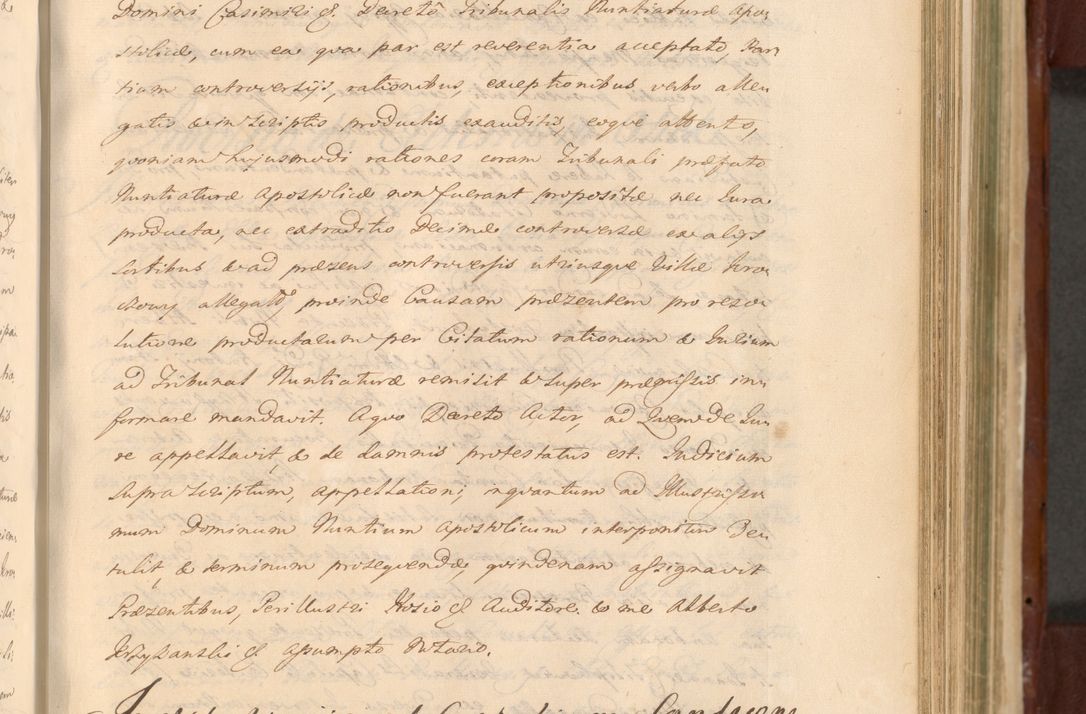 Domini Casimiri & Decretô Tribunalis Nuntiaturæ Apo:
stolicæ, cum ea qva par est reverentia acceptato, Par:
tium controversijs, rationibus, exceptionibus verbo alle:
gatis & in scriptis productis exauditis, eoqve attento,
qvoniam hujusmodi rationes coram Tribunali præfato
Nuntiaturæ Apostolicæ non fuerant propositæ nec Iura
producta, nec extraditio Decimæ controversæ ex alijs
Sortibus & ad præsens controversis utriusqve Villæ
allegatæ, proinde Causam præzentem pro reso:
lutione productarum per Citatum rationum & Iurium
ad Tribunal Nuntiaturæ remisit & super præmissis in:
formare mandavit. A qvo Decreto Actor, ad Qvem de Iu:
re appellavit, & de damnis protestatus est. Iudicium
Supra Scriptum, appellationi, in qvantum ad Illustrissi:
mum Dominum Nuntium Apostolicum interponitur De:
tulit, & terminum proseqvendæ, qvindenam assignavit
Præzentibus, Perillustri Hosio & Auditore & me Alberto
& assumpto Notario.